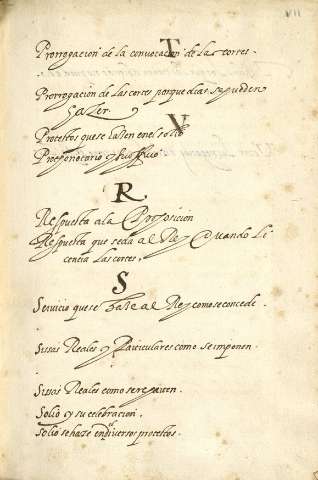 VII
T
Prorrogacion de la convocacion de las cortes.
Prorrogacion de las cortes porque dias se pueden
hazer
V
Protestos que se hazen en el solio
Prothonotario y su officio
R
Respuesta a la Proposicion
Respuesta que se da al Rey Quando Li
cencia las cortes.
S
Servicio que se haze al Rey como se concede.
Sissas Reales y Particulares como se imponen.
Sissas Reales como se remiten.
Solio y su celebracion.
Solio se haze en diversos protestos.